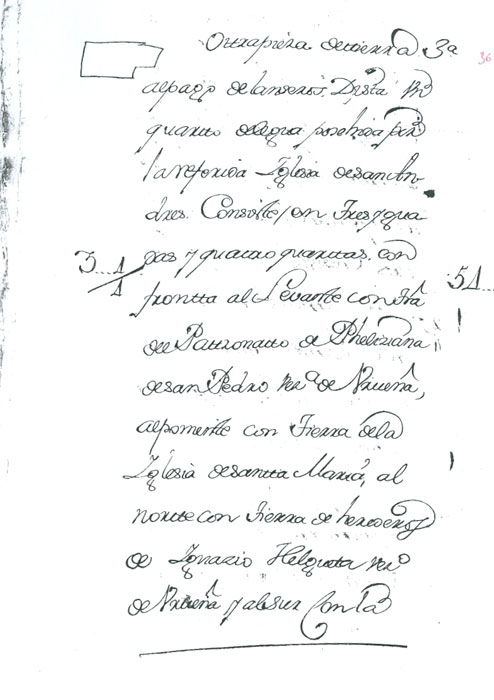 Otra pieza de tierra 3ª
36
al pago de lanseros. Dista
quarto de legua poseida por
la referida Iglesia de san An
dres. Consiste en Tres ygua
das y quatro quartas. con
3...1/1
51...
fronta al Levante con trã
de Patronato de Pheliziana
de san Pedro vezª de Vrueña,
al poniente con Tierra de la
Iglesia de santta Maria, al
nortte con Tierra de herederos
de Ignazio Helgueta vezº
de Vrueña y al sur con la